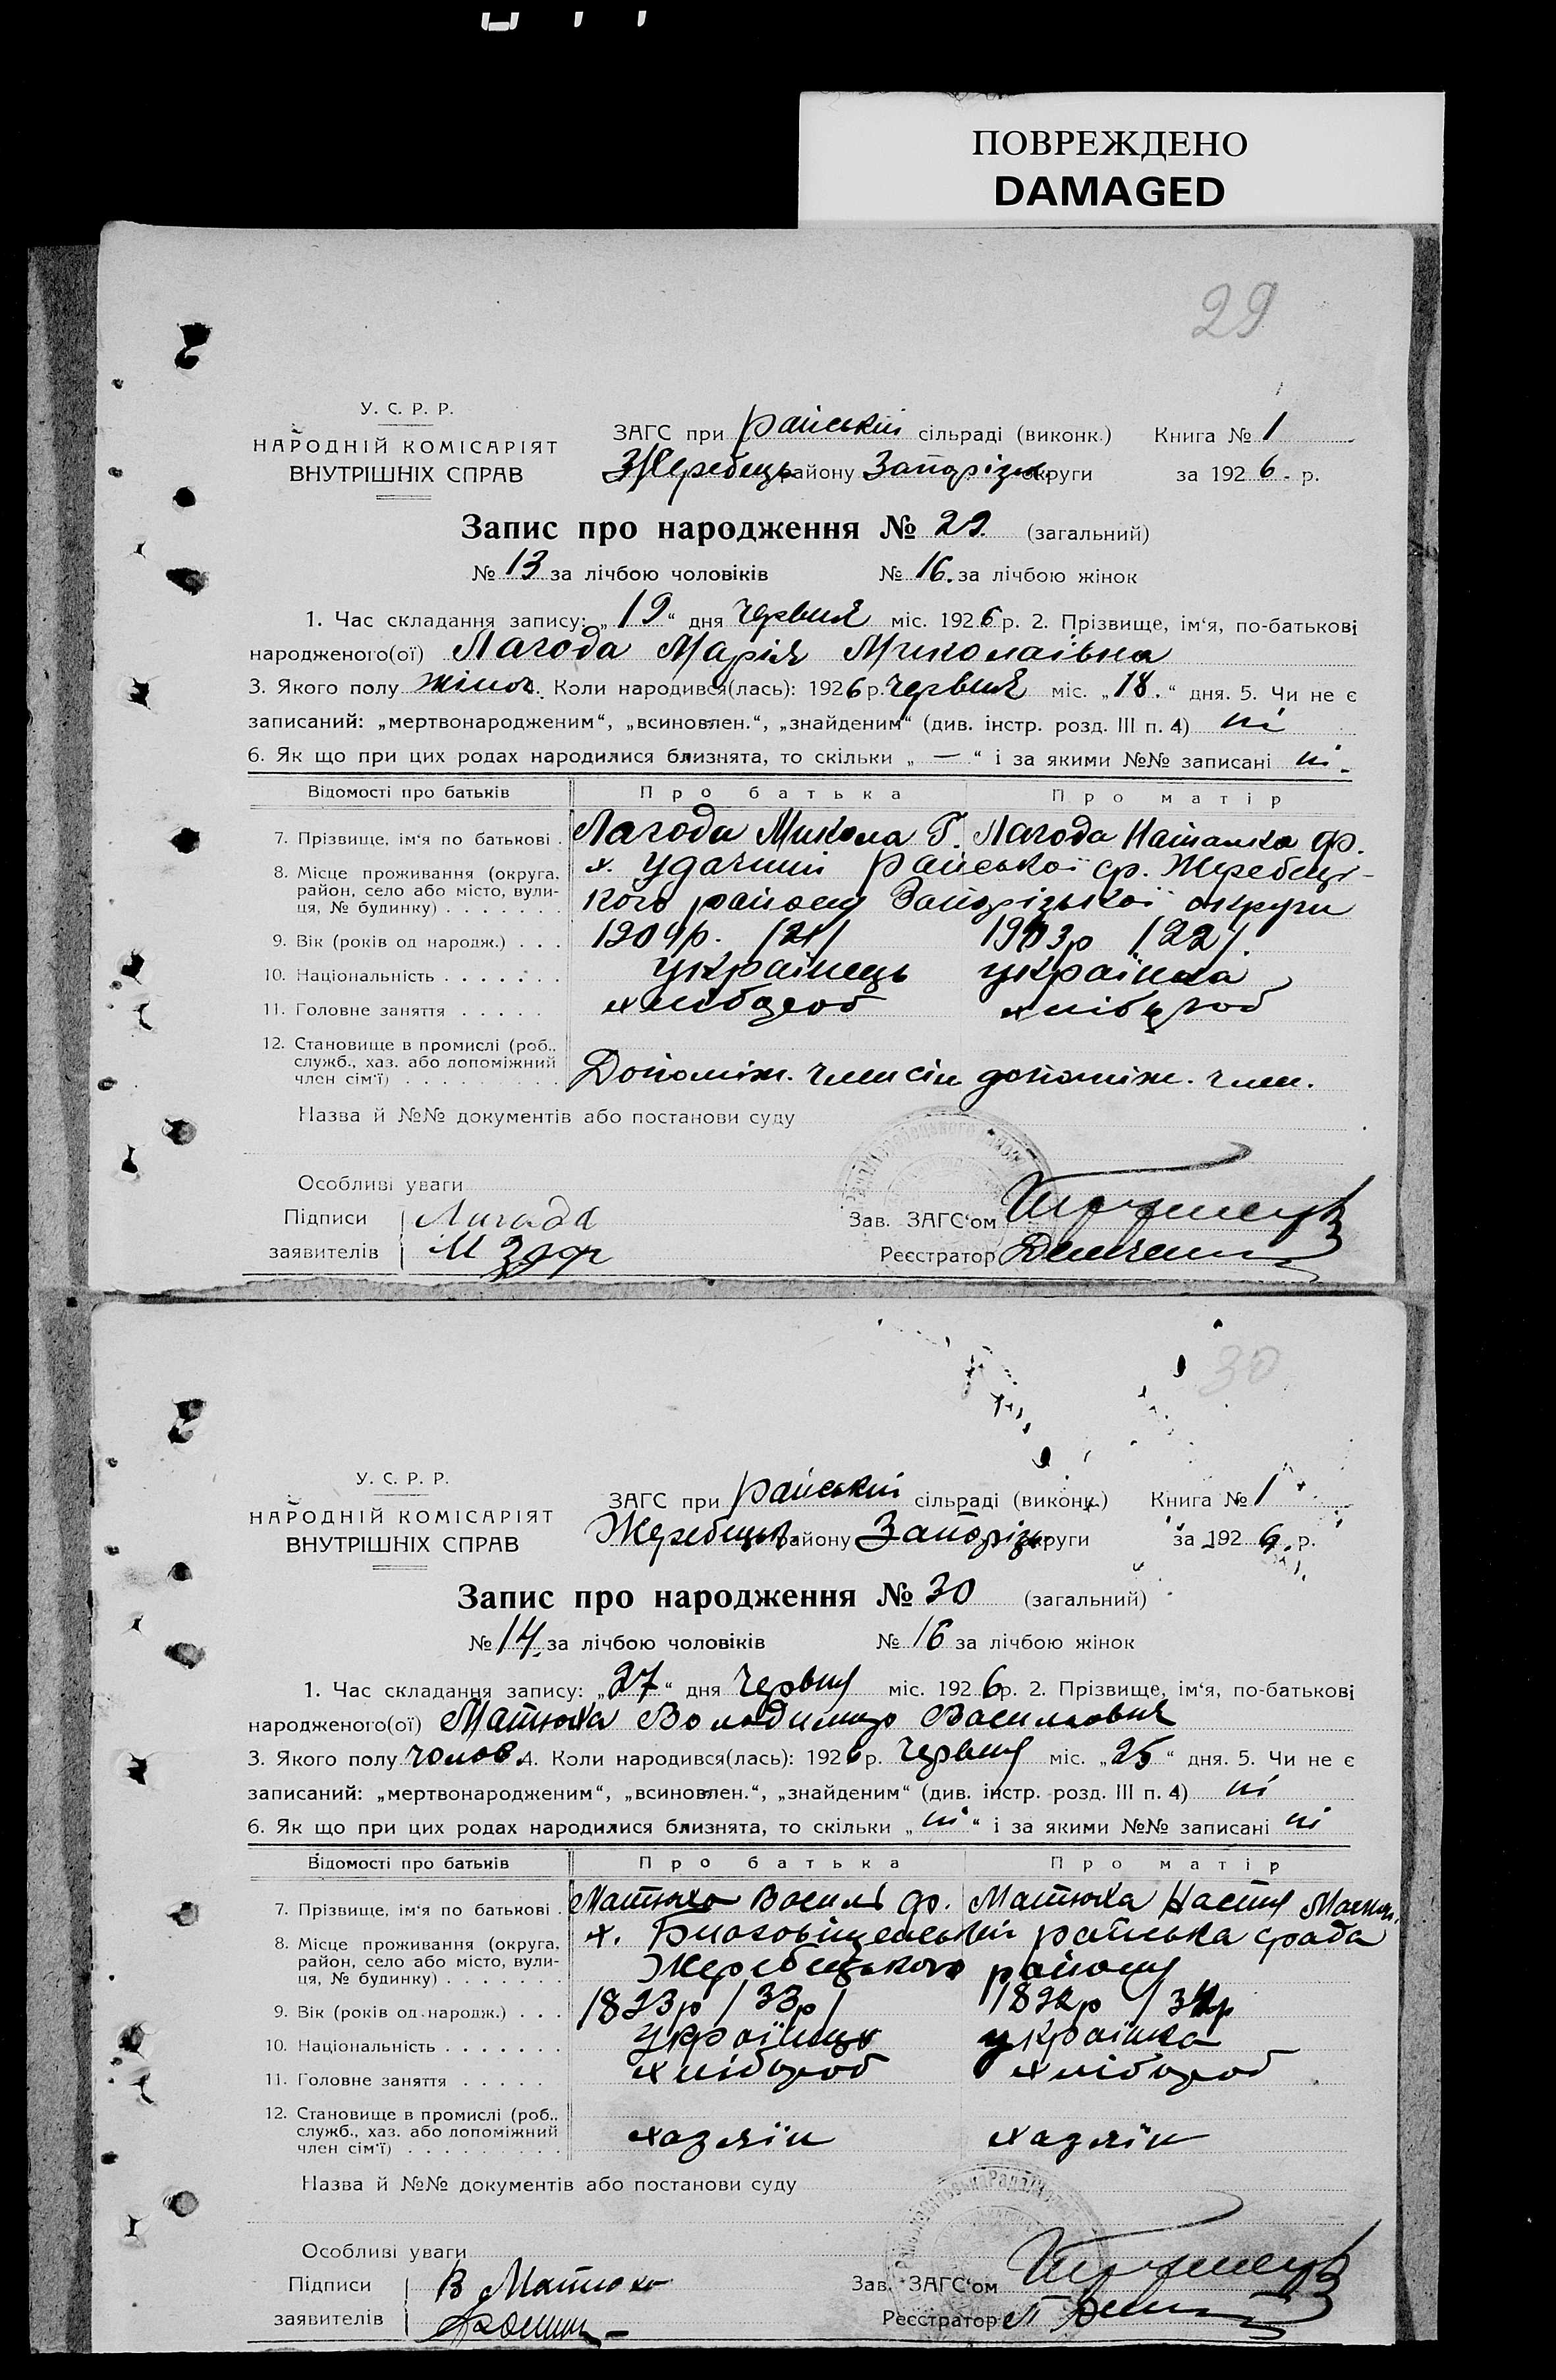 ПОВРЕЖДЕНО
DAMAGED
29
У. С. Р. Р.
НАРОДНІЙ КОМІСАРІЯТ
ВНУТРІШНІХ СПРАВ
ЗАГС при райській сільраді (виконк.) Книга № 1
Жеребецьк району Запоріжж. округи за 1926 р.
Запис про народження № 29. (загальний)
№ 13 за лічбою чоловіків № 16. за лічбою жінок
1. Час складання запису: „19“ дня червня міс. 1926 р. 2. Прізвище, ім‘я, по-батькові
народженого(ої) Лагода Марія Миколаївна
3. Якого полу жіноч. Коли народився(лась): 1926 р. червня міс. „18.“ дня. 5. Чи не є
записаний: „мертвонародженим“, „всиновлен.“, „знайденим“ (див. інстр. розд. III п. 4) ні
6. Як що при цих родах народилися близнята, то скільки „ — “ і за якими №№ записані ні.
Відомості про батьків Про батька Про матір
7. Прізвище, ім‘я по батькові . Лагода Микола Г. Лагода Наталка Ф.
8. Місце проживання (округа, район, село або місто, вули-ця, № будинку) . . . . . . . х. Удачний Райської ср. Жеребець-
кого району Запорізької округи
9. Вік (років од народж.) . . . 1904р. /21/ 1903р /22/.
10. Національність . . . . . . . українець українка
11. Головне заняття . . . . . хлібороб хлібороб
12. Становище в промислі (роб., служб., хаз. або допоміжний член сім‘ї) . . . . . . . . . Допоміж. член сім допоміж. член.
Назва й №№ документів або постанови суду
Особливі уваги
Підписи Лагода
заявителів М
Зав. ЗАГС‘ом
Реєстратор
30
У. С. Р. Р.
НАРОДНІЙ КОМІСАРІЯТ
ВНУТРІШНІХ СПРАВ
ЗАГС при райській сільраді (виконк.) Книга № 1
Жеребецьк. району Запоріж. округи за 1926. р.
Запис про народження № 30 (загальний)
№ 14. за лічбою чоловіків № 16 за лічбою жінок
1. Час складання запису: „27“ дня червня міс. 1926 р. 2. Прізвище, ім‘я, по-батькові
народженого(ої) Матюха Володимир Васильович
3. Якого полу чолов. 4. Коли народився(лась): 1926 р. червня міс. „25“ дня. 5. Чи не є
записаний: „мертвонародженим“, „всиновлен.“, „знайденим“ (див. інстр. розд. III п. 4) ні
6. Як що при цих родах народилися близнята, то скільки „ні“ і за якими №№ записані ні
Відомості про батьків Про батька Про матір
7. Прізвище, ім‘я по батькові . Матюха Василь Ф. Матюха Настя
8. Місце проживання (округа, район, село або місто, вули-ця, № будинку) . . . . . . . х. Благовіщенський райська срада
Жеребецького району
9. Вік (років од народж.) . . . 1893р /33р/ /34р
10. Національність . . . . . . . українець українка
11. Головне заняття . . . . . хлібороб хлібороб
12. Становище в промислі (роб., служб., хаз. або допоміжний член сім‘ї) . . . . . . . . . хазяїн хазяїн
Назва й №№ документів або постанови суду
Особливі уваги
Підписи В Матюха
заявителів
Зав. ЗАГС‘ом
Реєстратор